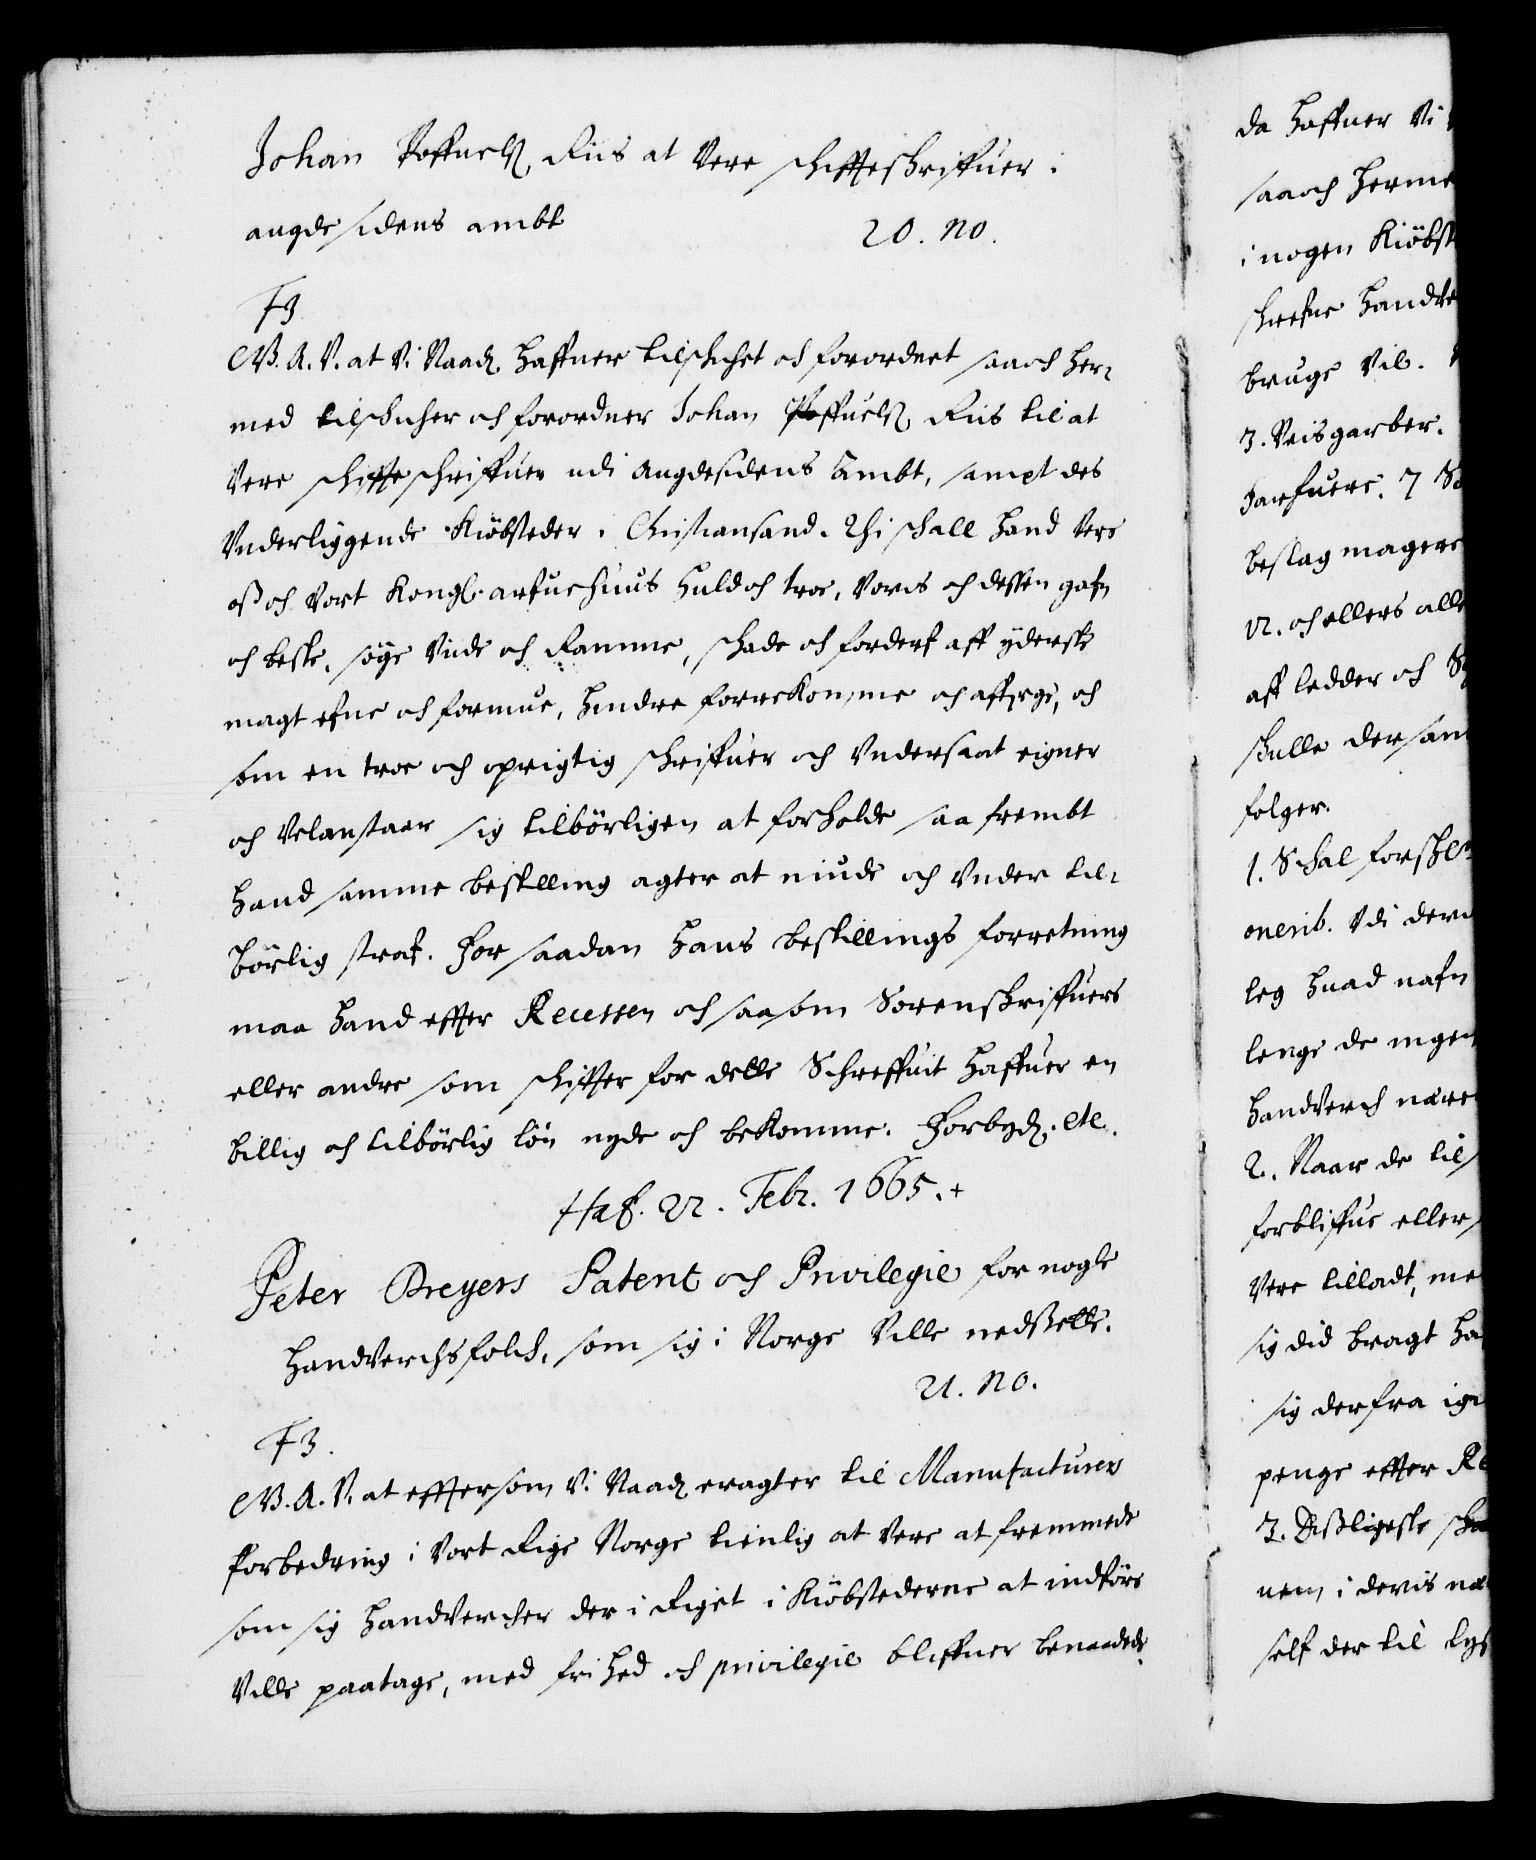 Johan Poffuels. Riis at Vere schiffteskriffuer i
angdesidens ambt 20. no.
F3
G. A. V. at Vi Naad. haffuer tilschichet och forordnet saa och her-
med tilschicher och forordner Johan Poffuels. Riis til at
Vere schiffte schriffuer udi Angdesidens Ambt, sampt des
Underliggende Kiöbsteder. Christiansand. Thi schall hand Vere
oß och Vort Kongl. arfuehuus huld och troe, Voris och dessen gafn
och beste, söge Vide och Ramme, schade och forderf aff yderste
magt efne och formue, hindre forrekomme och affverge, och
som en troe och oprigtig schriffuer och Undersaat eigner
och Velanstaar sig tilbörligen at forholde saa frembt
hand samme bestilling agter at niude och under til-
börlig straf. For saadan hans bestillings forretning
maa hand effter Recessen och saasom Sorenskriffuere
eller andre som schiffter for dette Schreffuit haffuer en
billig och tilbörlig lön nyde och bekomme. Forbyd. etc.
Haf. 22. Febr. 1665. +
Peter Dreyers Patent och Privilegie for nogle
handverchsfolch, som sig i Norge Ville nedsette.
21. no.
F3.
G. A. V. at effterson Vi Naad eragter til Manufacturers
forbedring i Vort Rige Norge tienlig at Vere at fremmede
som sig handvercher der i Riget i Kiöbstederne at indföre
Ville paatage, med frihed och privilegie bliffuer benaadede
da haffuer Vi
saa och herme
i nogen Kiöbst
schrefne handve
bruge Vil.
3. Veisgarber.
farfuere. 7 S
beslag magere
12. och ellers alle
aff ledder och
skulle der sam
folger.
1. Schal forskl
onerib. Vdi der
leg huad nafn
lenge de ingen
handverch nære
2. Naar de til
forbliffue eller
Vere tilladt, me
sig did bragt ha
sig derfra ige
penge effter Re
3. Dißligeste sch
nem i deris næ
self der til lys